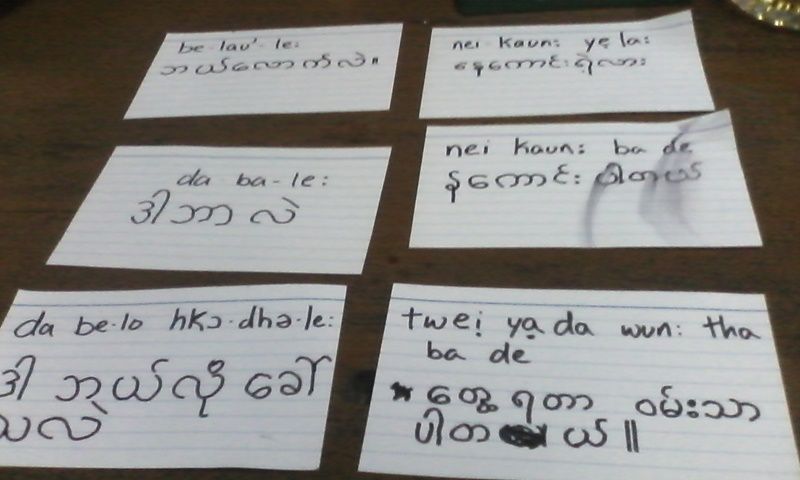 be-lau'-le:
ဘယ်လောက်လဲ။
nei kaun: yẹ la:
နေကောင်းရဲ့လား
da ba-le:
ဒါဘာလဲ
nei kaun: ba de
န်ကောင်း ပါတယ်
da be-lo hkɔ-dhə-le:
ဒါ ဘယ်လို ခေါ်
သလဲ
twei. yạ da wun: tha
ba de
တွေ့ ရတာ ဝမ်းသာ
ပါတ ယ် ॥